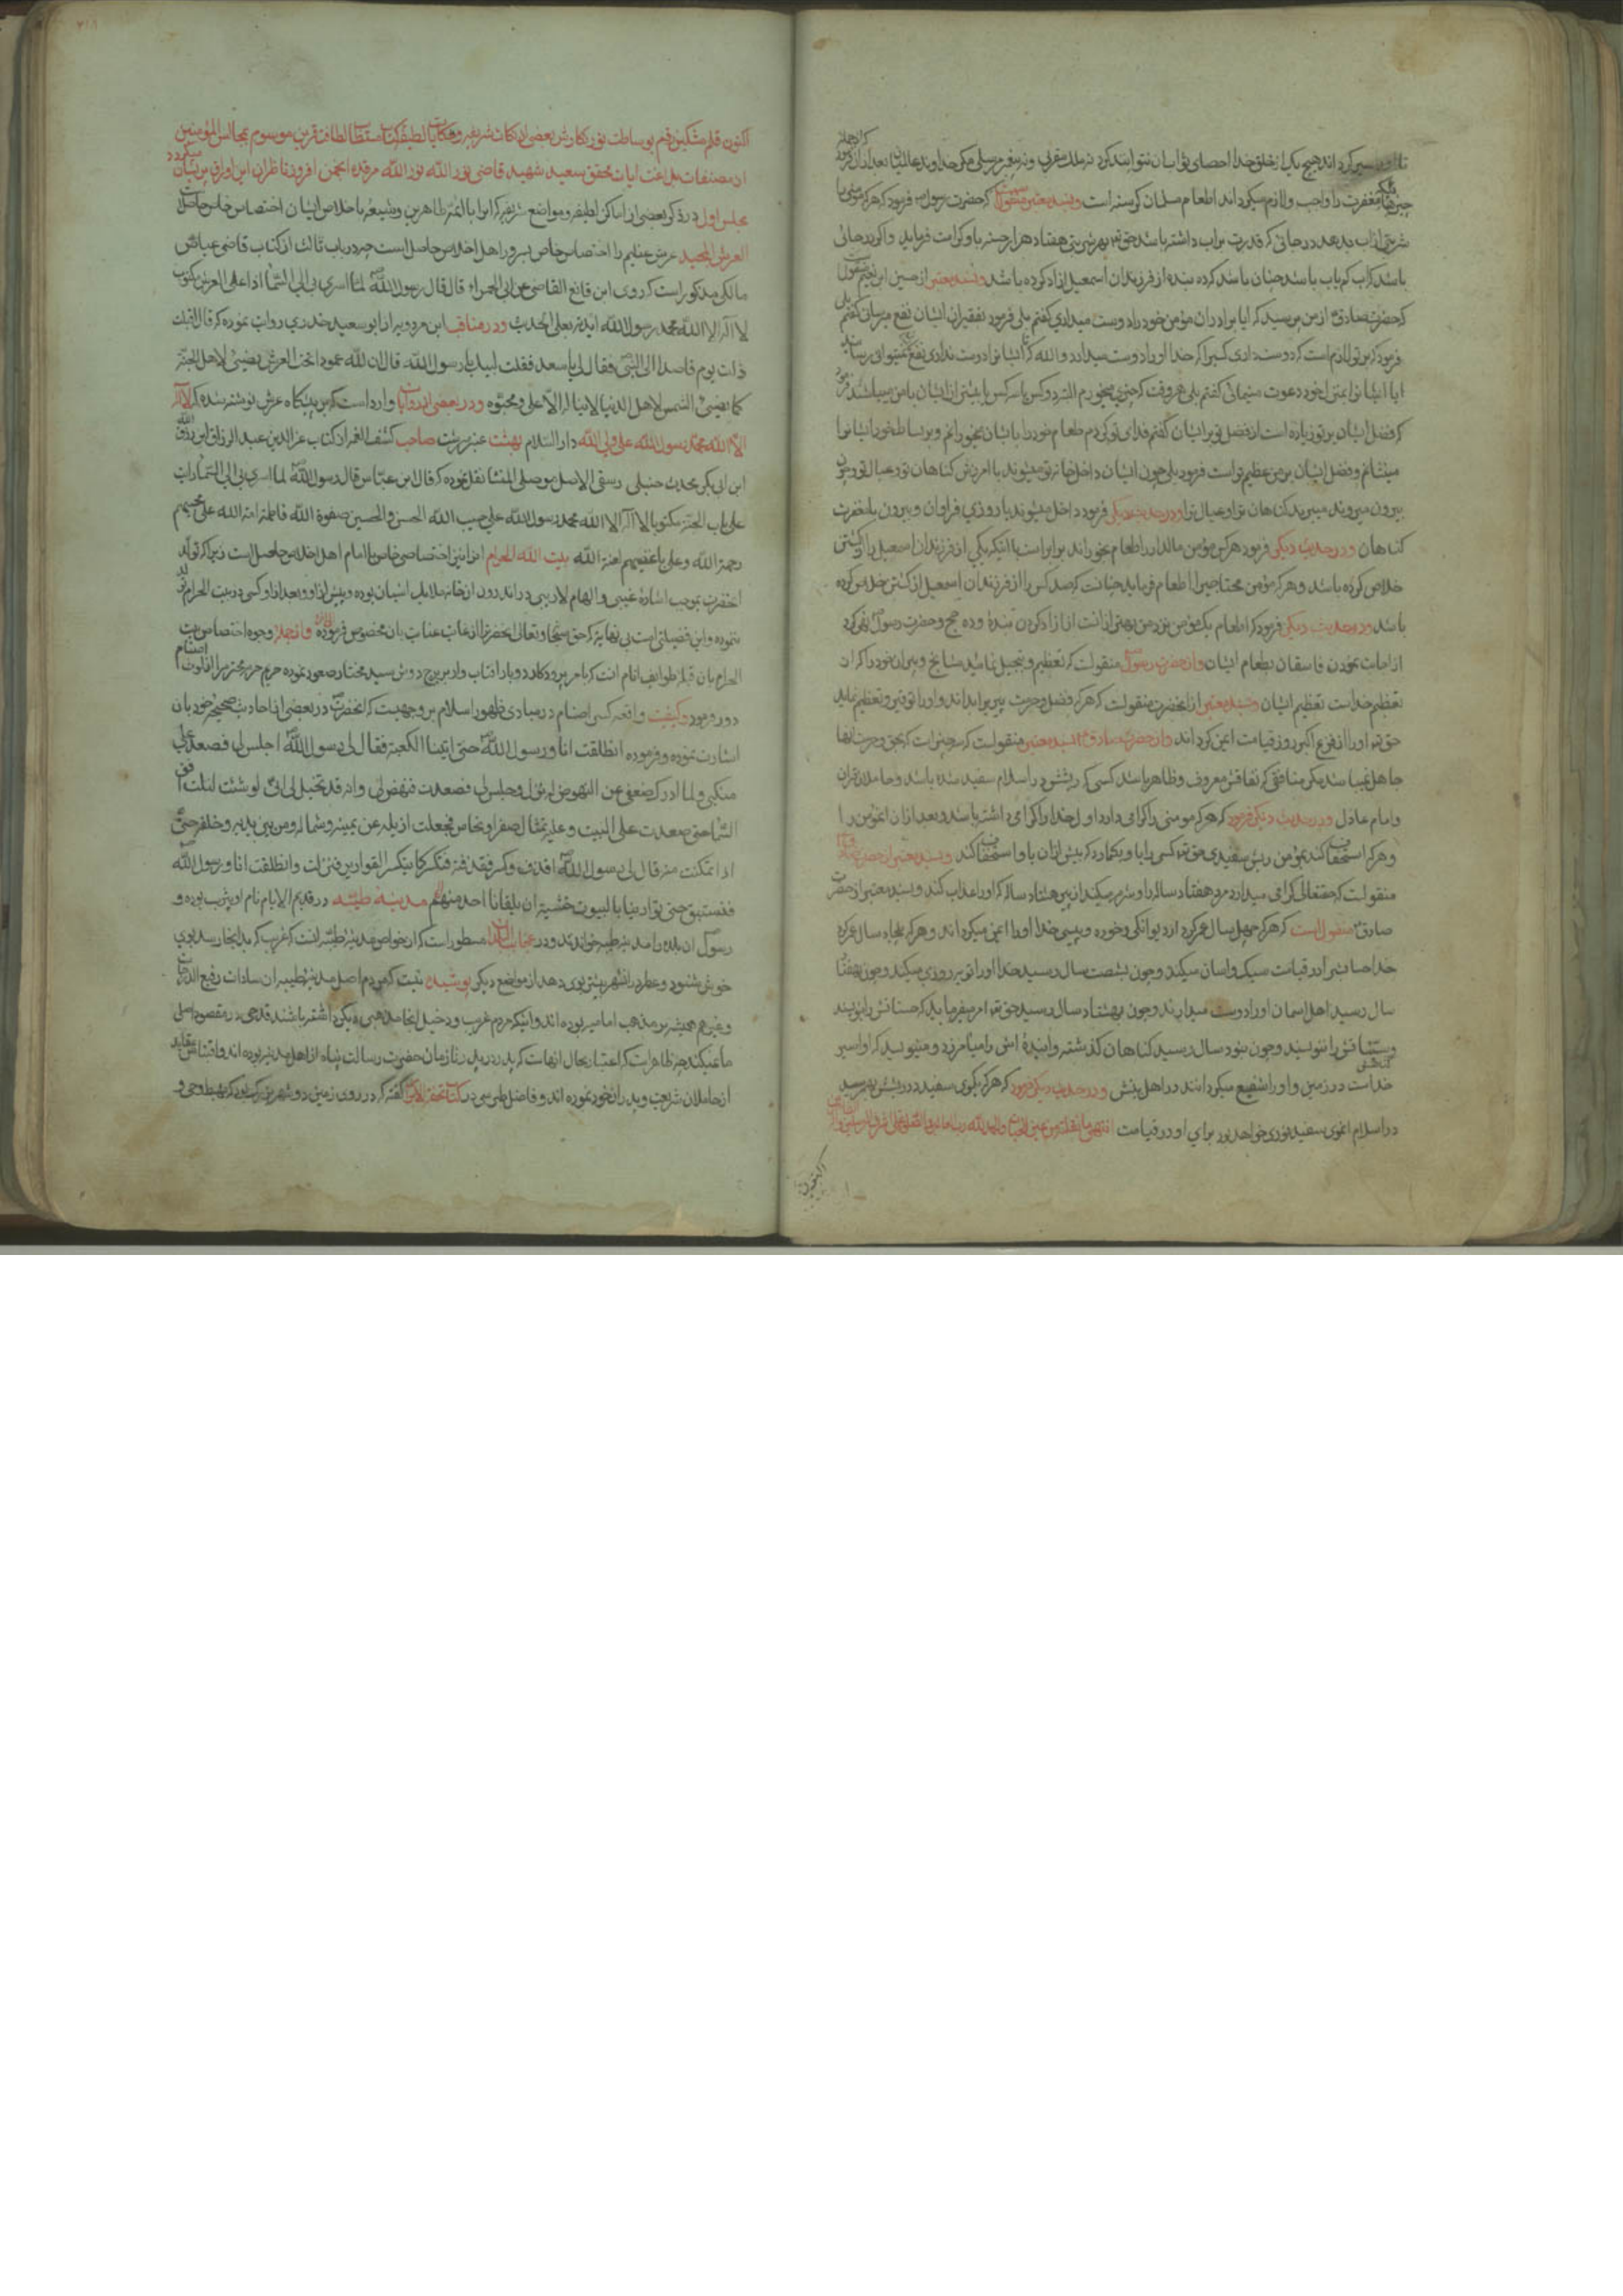 هیچ یک از خلق خدا احصای ثواب آن نتواند کرد نه ملک مقربی و نه پیغمبر مرسلی مگر خداوند عالمیان بعد از آن فرمود که از جمله
چیزهائیکه مغفرت را واجب و لازم میگرداند اطعام مسلمان گرسنه است و بسند معتبر منقولست که حضرت رسول فرمود که هر که مؤمنی را
شربتی از آب بدهد در جائی که قدرت بر آب داشته باشد حق تعالی بهر شربتی هفتاد هزار حسنه باو کرامت فرماید و اگر در جائی
باشد که آب کم یاب باشد چنان باشد که ده بنده از فرزندان اسمعیل آزاد کرده باشد و بسند معتبر از حسین ابن نعیم منقول
که حضرت صادق از من پرسید که آیا برادران مؤمن خود را دوست میداری گفتم بلی فرمود بفقیران ایشان نفع میرسانی گفتم بلی
فرمود که بر تو لازم است که دوست داری کسی را که خدا او را دوست میدارد والله که تا ایشانرا دوست نداری نفع نمیتوانی رساند
آیا ایشانرا بمنزل خود دعوت مینمائی گفتم بلی هر وقت که چیزی میخورم البته دو کس یا سه کس یا بیشتر از ایشان با من میباشند فرمود
که فضل ایشان بر تو زیاده است از فضل تو بر ایشان گفتم فدای تو گردم طعام خود را بایشان میخورانم و بر بساط خود ایشانرا
مینشانم و فضل ایشان بر من عظیم تر است فرمود بلی چون ایشان داخل خانه تو میشوند با آمرزش گناهان تو و عیال تو و چون
بیرون میروند میبرند گناهان تو و عیال ترا و در حدیث دیگر فرمود داخل میشوند با روزی فراوان و بیرون با مغفرت
گناهان و در حدیث دیگر فرمود هر کس مؤمن مالدار را طعام بخوراند برابر است با آنکه یکی از فرزندان اسمعیل را از کشتن
خلاص کرده باشد و هر که مؤمن محتاجی را اطعام فرماید چنانست که صد کس را از فرزندان اسمعیل از کشتن خلاص کرده
باشد و در حدیث دیگر فرمود که اطعام یک مؤمن نزد من بهتر از آنست از آزاد کردن بنده و ده حج و حضرت رسول نهی کرد
از اجابت نمودن فاسقان بطعام ایشان و از حضرت رسول منقولست که تعظیم و تبجیل نمائید مشایخ و پیران خود را که از
تعظیم خداست تعظیم ایشان و بسند معتبر از آنحضرت منقولست که هر که فضل و حرمت پیری را بداند و او را توقیر و تعظیم نماید
حق تعالی او را از فزع اکبر روز قیامت ایمن گرداند و از حضرت صادق بسند معتبر منقولست که سه چیز است که بحق و حرمت آنها
جاهل نمیباشد مگر منافقی که نفاقش معروف و ظاهر باشد کسی که ریشش در اسلام سفید شده باشد و حاملان قرآن
و امام عادل و در حدیث دیگر فرمود که هر که مؤمنی را گرامی دارد اول خدا را گرامی داشته باشد و بعد از آن مؤمن را
و هر که استخفاف کند بمؤمن ریش سفیدی حق تعالی کسی را با او بگمارد که پیش از آن باو استخفاف کند و بسند معتبر از حضرت
منقولست که حقتعالی گرامی میدارد مرد هفتاد ساله را و شرم میکند از پیر هشتاد ساله که او را عذاب کند و بسند معتبر از حضرت
صادق منقول است که هر که چهل سال عمر کرد از دیوانگی و خوره و پیسی خدا او را ایمن میگرداند و هر که پنجاه سال عمر کرد
خدا حسابش را در قیامت سبک و آسان میکند و چون بشصت سال رسید خدا او را توبه روزی میکند و چون بهفتاد
سال رسید اهل آسمان او را دوست میدارند و چون بهشتاد سال رسید حق تعالی امر میفرماید که حسناتش را بنویسند
و سیئاتش را ننویسند و چون بنود سال رسید گناهان گذشته و آینده اش را میآمرزد و مینویسند که او اسیر
خداست در زمین و او را شفیع میگردانند در اهل بیتش و در حدیث دیگر فرمود که هر که یک موی سفید در ریشش بهمرسید
در اسلام آن موی سفید نوری خواهد بود برای او در قیامت
اکنون
اکنون قلم مشکین رقم بوساطت نور نگارش بعضی از نکات شریفه و حکایات لطیفه کتاب مستطاب لطافت قرین موسوم بمجالس المؤمنین
از مصنفات بلاغت آیات محقق سعید شهید قاضی نور الله نور الله مرقده انجمن افروز ناظران این اوراق پریشان میگردد
مجلس اول در ذکر بعضی از اماکن لطیفه و مواضع شریفه که آنرا بائمه طاهرین و شیعه باخلاص ایشان اختصاص خاص حاصل است
العرش المجید عرش عظیم را اختصاص خاص بسرور اهل اخلاص حاصل است چه در باب ثالث از کتاب قاضی عیاض
مالکی مذکور است که روی ابن قانع القاضی عن ابی الحمراء قال قال رسول الله لما اسری بی الی السماء اذا علی العرش مکتوب
لا اله الا الله محمد رسول الله ایدته بعلی الحدیث و در مناقب ابن مردویه از ابو سعید خدری روایت نموده که قال اقبلت
ذات یوم قاصدا الی النبی فقال لی یا سعد فقلت لبیک یا رسول الله قال ان لله عمودا تحت العرش یضیئ لاهل الجنة
کما یضیئ الشمس لاهل الدنیا لا یناله الا علی و محبوه و در بعضی از روایات وارد است که بر پیشگاه عرش نوشته شده که لا اله
الا الله محمد رسول الله علی ولی الله دار السلام بهشت عنبر سرشت صاحب کشف الغمه از کتاب عز الدین عبد الرزاق ابن رزق الله
ابن ابی بکر محدث حنبلی رسعنی الاصل موصلی المنشا نقل نموده که قال ابن عباس قال رسول الله لما اسری بی الی السماء رایت
علی باب الجنة مکتوبا لا اله الا الله محمد رسول الله علی حبیب الله الحسن والحسین صفوة الله فاطمة امة الله علی محبیهم
رحمة الله و علی باغضیهم لعنة الله بیت الله الحرام آنرا نیز اختصاصی خاص با امام اهل اخلاص حاصل است زیرا که تولد
آنحضرت بموجب اشاره غیبی و الهام لاریبی در اندرون آن خانه ملایک آشیان بوده و پیش از او و بعد از او کسی در بیت الحرام تولد
ننموده و این فضیلتی است بی نهایة که حق سبحانه و تعالی آنحضرت را از غایت عنایت بآن مخصوص فرموده و از جمله وجوه اختصاص بیت
الحرام بآن قبله طوایف انام آنست که بامر پروردگار دو بار آفتاب وار بر برج دوش سید مختار صعود نموده حریم حرم محترم را از لوث اصنام
دور فرمود و کیفیت واقعه کسر اصنام در مبادی ظهور اسلام بر وجهیست که آنحضرت در بعضی از احادیث صحیحه خود بآن
اشارت نموده و فرموده انطلقت انا و رسول الله حتی اتینا الکعبة فقال لی رسول الله اجلس لی فصعد علی
منکبی و لما ادرک ضعفی عن النهوض له نزل و جلس لی فصعدت فنهض لی و انه قد تخیل لی انی لو شئت لنلت افق
السماء حتی صعدت علی البیت و علیه تمثال صفر او نحاس فجعلت ازیله عن یمینه و شماله و من بین یدیه و خلفه حتی
اذا تمکنت منه قال لی رسول الله اقذف وکسر فقذفته فتکسر کما ینکسر القواریر فنزلت وانطلقت انا و رسول الله
فنستبق حتی تواریننا بالبیوت خشیة ان یلقانا احد منهم مدینه طیبه در قدیم الایام نام او یثرب بوده و
رسول آن بلده را مدینه طیبه خواندند و در عجایب البلدان مسطور است که از خواص مدینه طیبه آنست که غریب که بدانجا رسد بوی
خوش شنود و عطر در آن شهر بیشتر بوی دهد از مواضع دیگر پوشیده نیست که مردم اصل مدینه طیبه از سادات رفیع الدرجات
و غیرهم همیشه بر مذهب امامیه بوده اند و اینکه مردم غریب و دخیل آنجا مذهبی دیگر داشته باشند قدحی در مقصود اصلی
ما نمیکند چه ظاهر است که اعتبار بحال آنهاست که پدر بر پدر تا زمان حضرت رسالت پناه از اهل مدینه بوده اند و اقتباس عقاید
از حاملان شریعت و پدران خود نموده اند و فاضل طبرسی در کتاب تحفة الابرار گفته که در روی زمین دو شهر بزرگ بود که مهبط وحی و